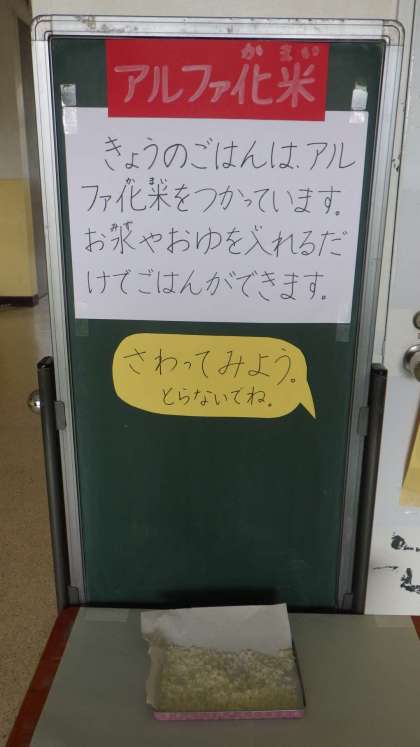 かまい
アルファ化米
きょうのごはんは、アル
かまい
ファ化米をつかっています。
みず
お水やおゆを入れるだ
けでごはんができます。
さわってみよう。
とらないでね。